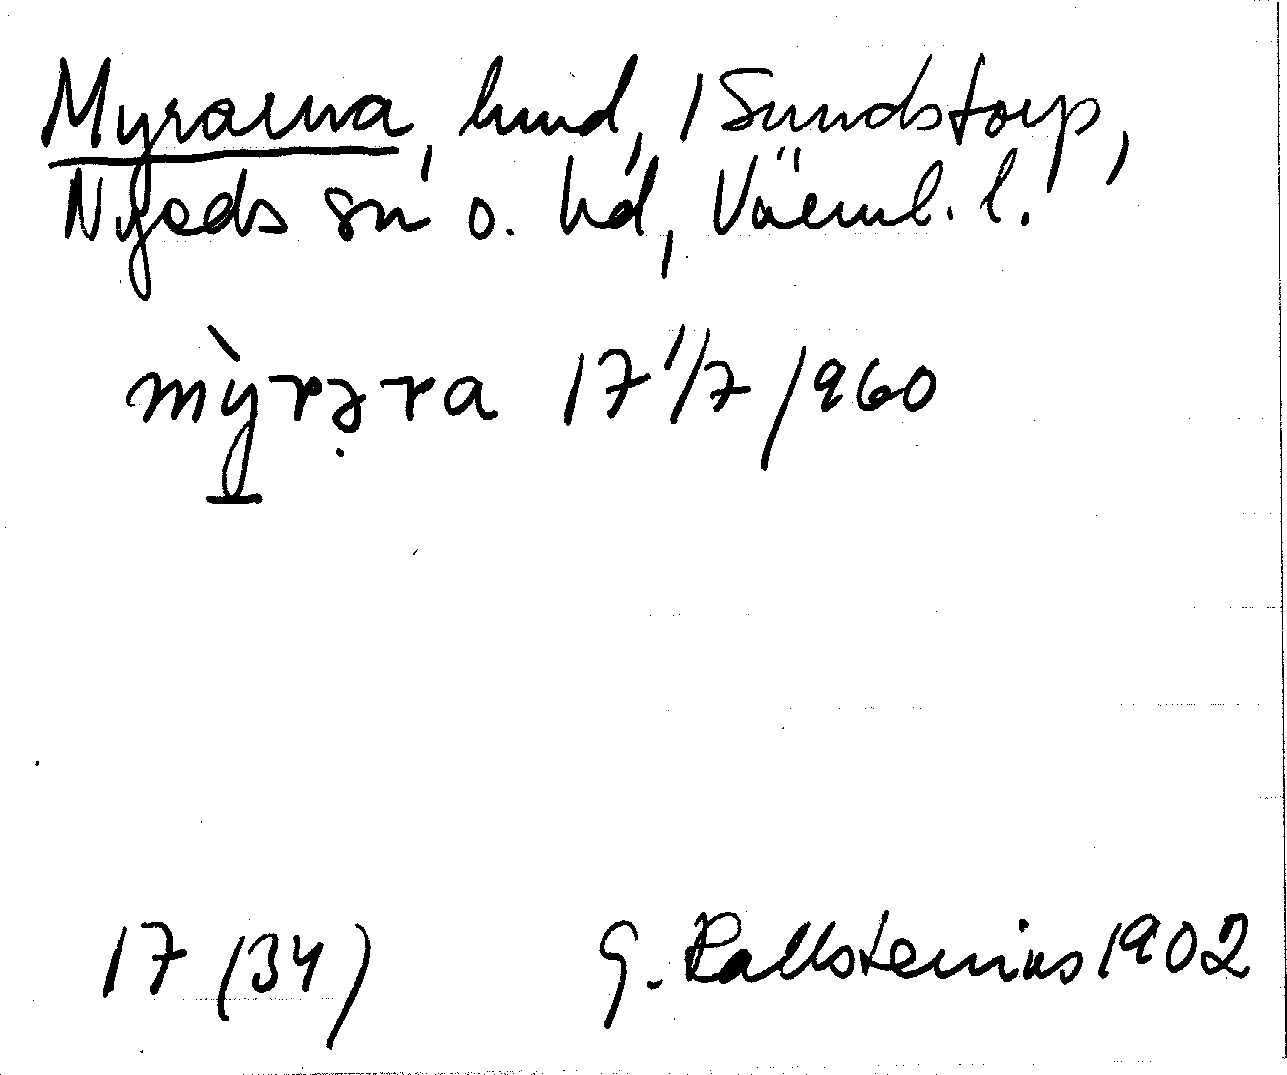 Myrarna, hund, i Sundstorp,
Nyeds sn o. hd, Värml. l.
mỳrə̣ra 17 1/7 1960
17 (34) G. Kallstenius 1902